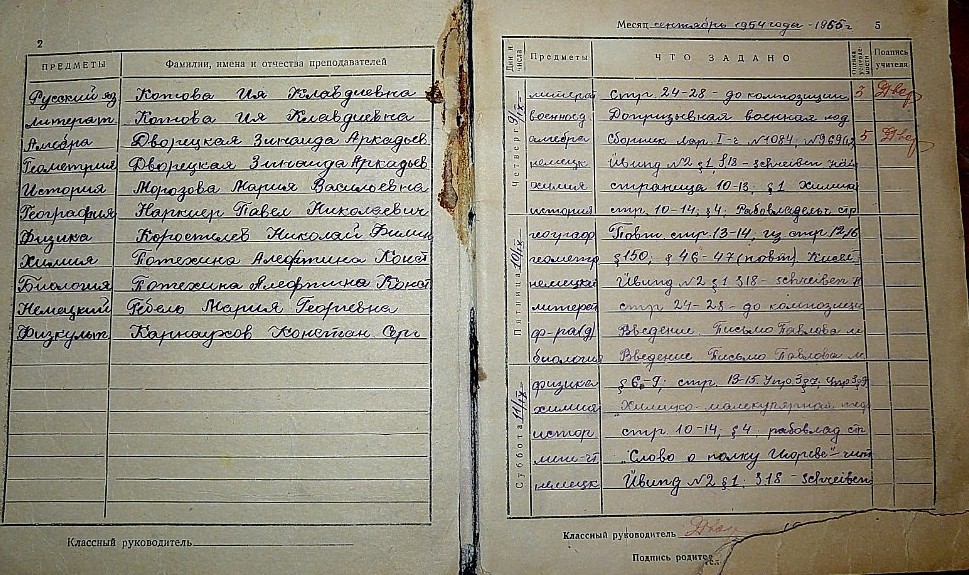 2
ПРЕДМЕТЫ Фамилии, имена и отчества преподавателей
Русский яз Котова Ия Клавдиевна
литерат. Котова Ия Клавдиевна
Алгебра Дворецкая Зинаида Аркадьев
Геометрия Дворецкая Зинаида Аркадьев
История Морозова Мария Васильевна
География Наркиер Павел Николаевич
Физика Коростелев Николай Филип
Химия Потехина Алефтина Конст
Биология Потехина Алефтина Конст
Немецкий Ребело Мария Георгевна
Физкульт Карнаухов Констан Серг
Классный руководитель
Месяц сентябрь 1954 года - 1955 г 5
Дни и числа Предметы ЧТО ЗАДАНО Оценка успевае-мости Подпись учителя
Четверг 9/IX
литерат стр. 24-28 - до композиции 3 Двор
военноед Допризывная военная под
алгебра Сборник Лар. I-ч. №1084, №969(2 5 Двор
немецк Ивинд №2 §1, §18 - schreiben
химия страница 10-13, §1 Химия
история стр. 10-14; §4; Рабовладельч стр
Пятница 10/IX
географ Повт стр. 13-14, из стр 12,16
геометр §150; §46-47 (повт)
немецкий Ивинд №2 §1 §18 - schreiben
литерат стр. 24-28 - до композици
ф-ра(д) Введение Письмо Павлова м
биология Введение Письмо Павлова м
Суббота 11/IX
физика §6-7; стр. 13-15. Упр 3§7. Упр 3§9
химия "Химико-малекулярная теор
истор стр. 10-14; §4: рабовлад стр
лит-ат "Слово о полку Игореве" - чит
немецк Ивинд №2 §1; §18 - schreiben
Классный руководитель Двор
Подпись родител